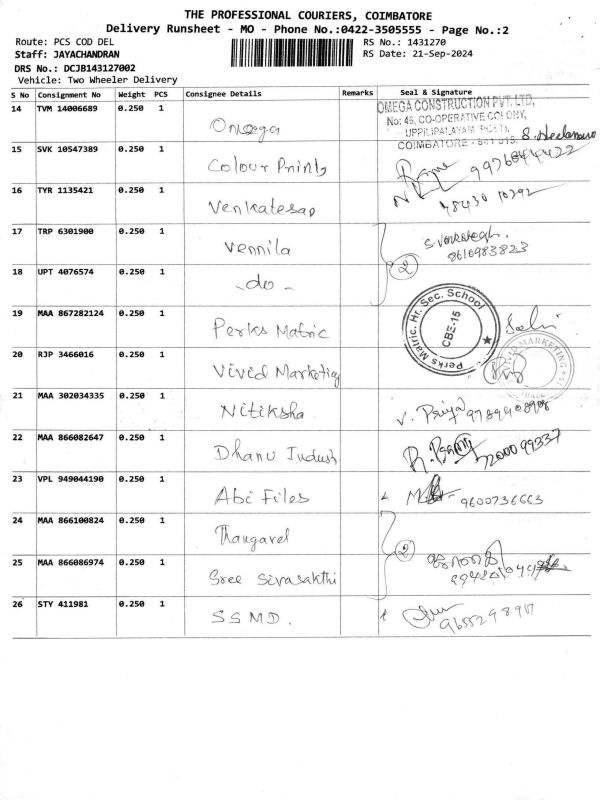 THE PROFESSIONAL COURIERS, COIMBATORE
Delivery Runsheet - MO - Phone No.:0422-3505555 - Page No.:2
Route: PCS COD DEL
RS No.: 1431270
Staff: JAYACHANDRAN
RS Date: 21-Sep-2024
DRS No.: DCJB143127002
Vehicle: Two Wheeler Delivery
S No Consignment No Weight PCS Consignee Details Remarks Seal & Signature
14 TVM 14006689 0.250 1 Omega
OMEGA CONSTRUCTION PVT. LTD,
No: 46, CO-OPERATIVE COLONY,
UPPILIPALAYAM POST,
COIMBATORE - 641 015.
15 SVK 10547389 0.250 1 Colour Prints
16 TYR 1135421 0.250 1 Venkatesap
17 TRP 6301900 0.250 1 Vennila
8616983823
18 UPT 4076574 0.250 1 -do- 2
19 MAA 867282124 0.250 1 Perks Matric
Perks Matric. Hr. Sec. School
CBE-15
20 RJP 3466016 0.250 1 Vivid Marketing
MARKETING
21 MAA 302034335 0.250 1 Nitiksha V. Priya
22 MAA 866082647 0.250 1 Dhanu Indust 7200099337
23 VPL 949044190 0.250 1 Abi Files 9600736663
24 MAA 866100824 0.250 1 Thangavel
2
25 MAA 866086974 0.250 1 Sree Sivasakthi
26 STY 411981 0.250 1 SSMD.